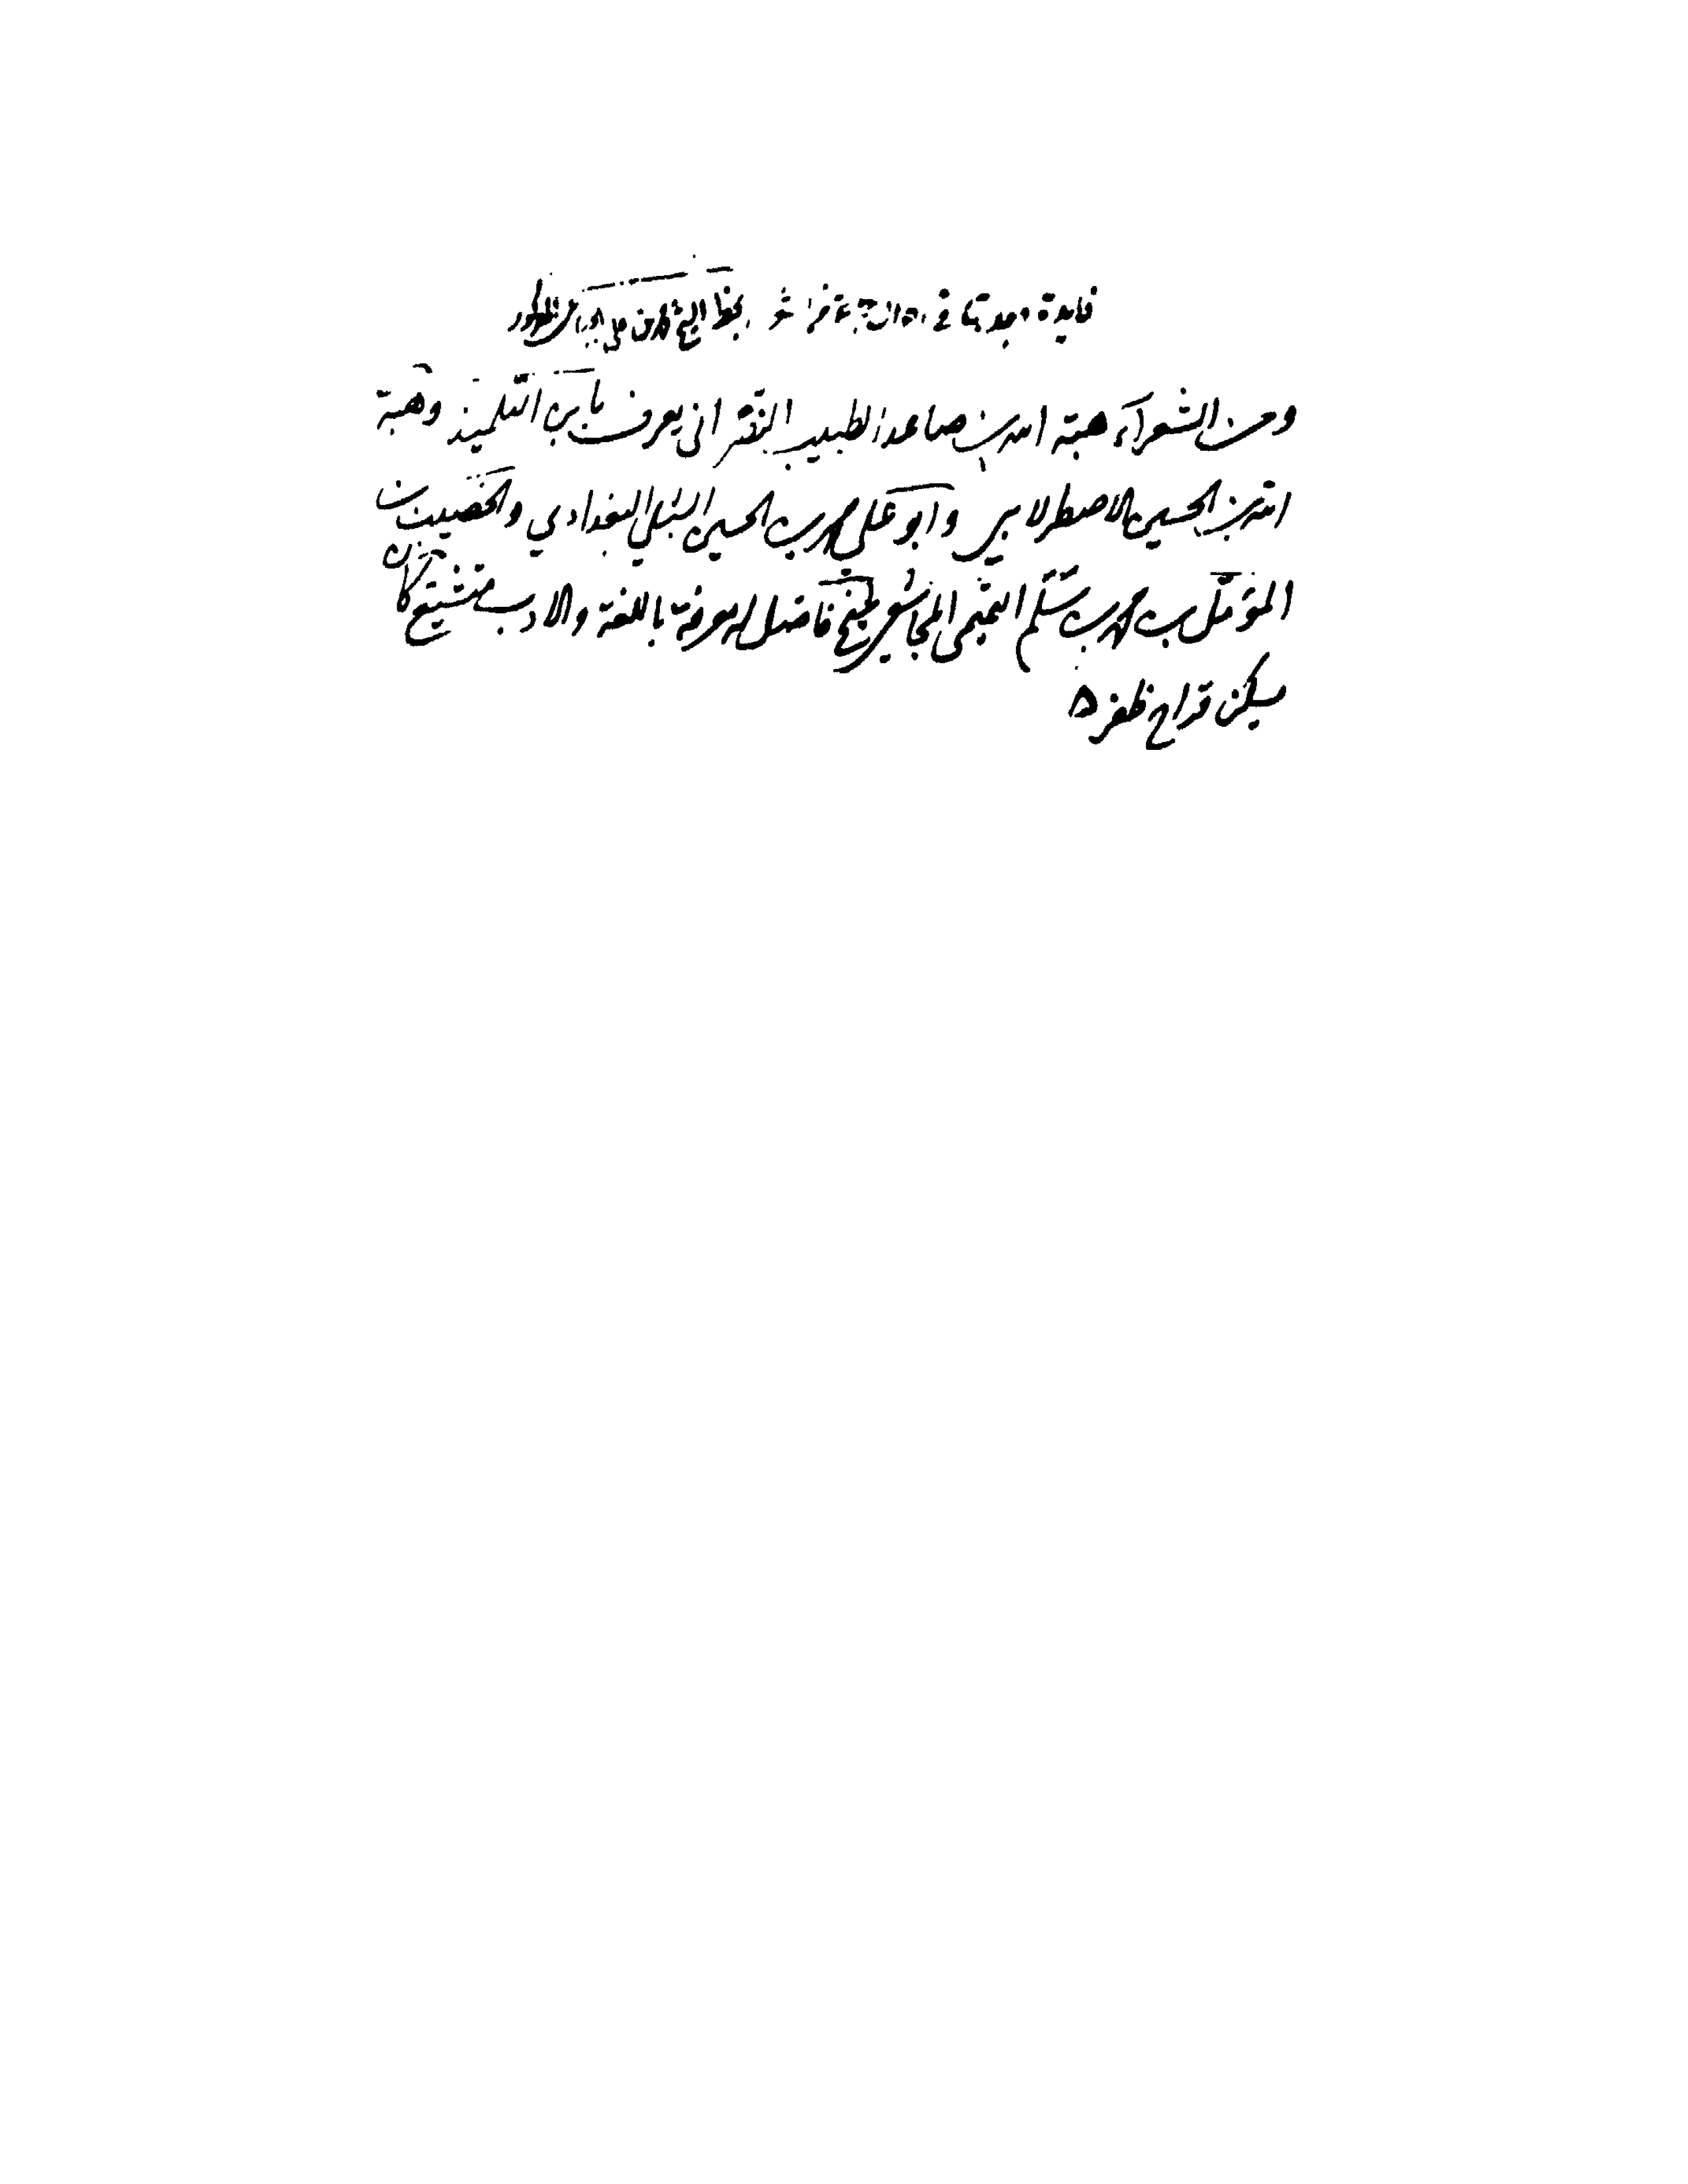 فايدة وجدتها في بخط الشيخ
ومن الشعرآء هبة الله بن صاعد الطبيب النصراني يعرف بابن التلميذ وهبة
الله بن الحسين الاصطرلابي وابو علي محمد بن الحسين الشبلي البغدادي والخصيب بن
المؤمّل بن محمد بن سَلم التميمي المجاشعي شيخ فاضل له معرفة باللغة والادب متشيّع كان
يسكن قراح ظفر ه